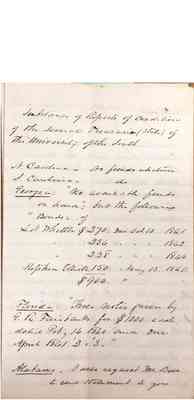 Substance of Reports of Condition
of the several Treasurers (State) of
the University of the South

N. Carolina - No funds whatever
S. Carolina - do
Georgia - "No available funds
on hand; but the following
"Bonds of
L. N. Whittle $270 due Oct. 10. 1861
" 254 " " 1862
" 238 " " 1863
Hopkins 150 May 15. 1861

Florida - "Three notes given by
G. R. Fairbanks for $1000 each
dated Feby 14 1860 one due
April 1861. 2. & 3."

Alabama. I have request Mr.
to send statement to you